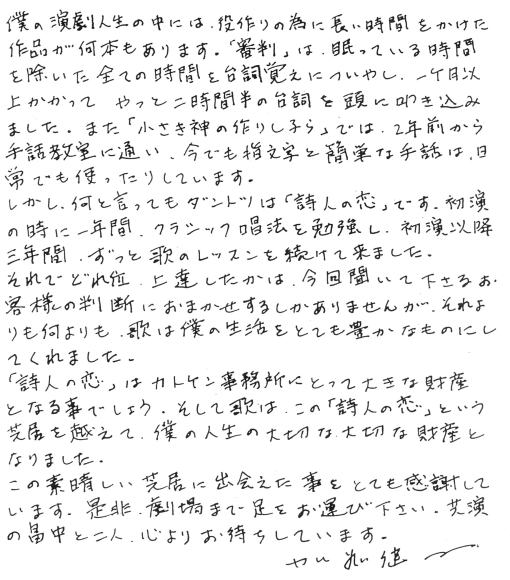 僕の演劇人生の中には、役作りの為に長い時間をかけた
作品が何本もあります。「審判」は、眠っている時間
を除いた全ての時間を台詞覚えについやし、一ケ月以
上かかって やっと二時間半の台詞を頭に叩き込み
ました。また「小さき神の作りし子ら」では、2年前から
手話教室に通い、今でも指文字と簡単な手話は、日
常でも使ったりしています。
しかし、何と言ってもダントツは「詩人の恋」です。初演
の時に一年間、クラシック唱法を勉強し、初演以降
三年間、ずっと歌のレッスンを続けて来ました。
それでどれ位、上達したかは、今回聞いて下さるお
客様の判断におまかせするしかありませんが、それよ
りも何よりも、歌は僕の生活をとても豊かなものにし
てくれました。
「詩人の恋」はカトケン事務所にとって大きな財産
となる事でしょう。そして歌は、この「詩人の恋」という
芝居を越えて、僕の人生の大切な、大切な財産と
なりました。
この素晴しい芝居に出会えた事をとても感謝して
います。是非、劇場まで足をお運び下さい。共演
の畠中と二人、心よりお待ちしています。